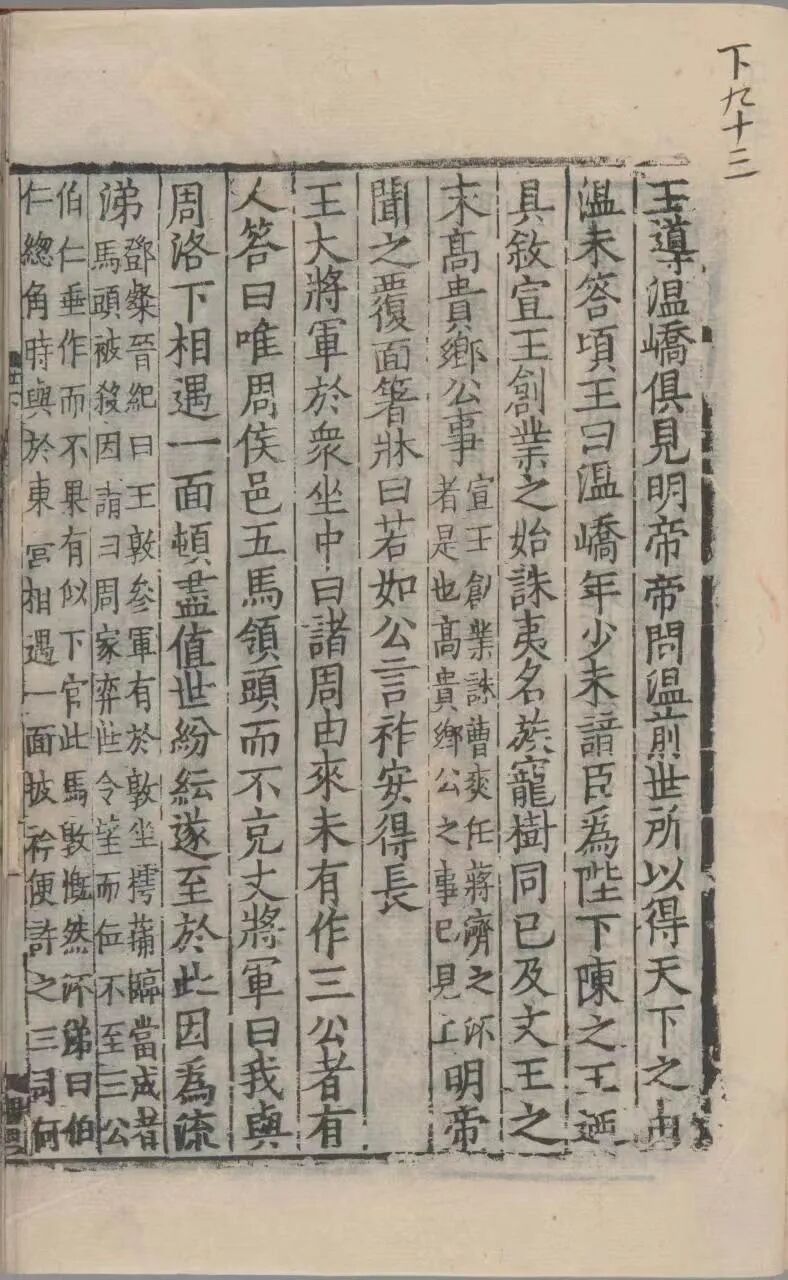 下九十三
王導温嶠俱見明帝帝問温前世所以得天下之由
温未答頃王曰温嶠年少未諳臣為陛下陳之王迺
具敘宣王創業之始誅夷名族寵樹同已及文王之
末髙貴鄉公事宣王創業誅曹爽任蔣濟之流
者是也髙貴鄉公之事已見上明帝
聞之覆面箸牀曰若如公言祚安得長
王大將軍於衆坐中曰諸周由來未有作三公者有
人答曰唯周侯邑五馬領頭而不克丈將軍曰我與
周洛下相遇一面頓盡值世紛紜遂至於此因為流
涕鄧粲晉紀曰王敦參軍有於敦坐摴蒱臨當成者
馬頭被殺因謂曰周家弈世令望而位不至三公
伯仁垂作而不果有似下官此馬敦慨然流涕曰伯
仁總角時與於東宮相遇一面披衿便許之三司何